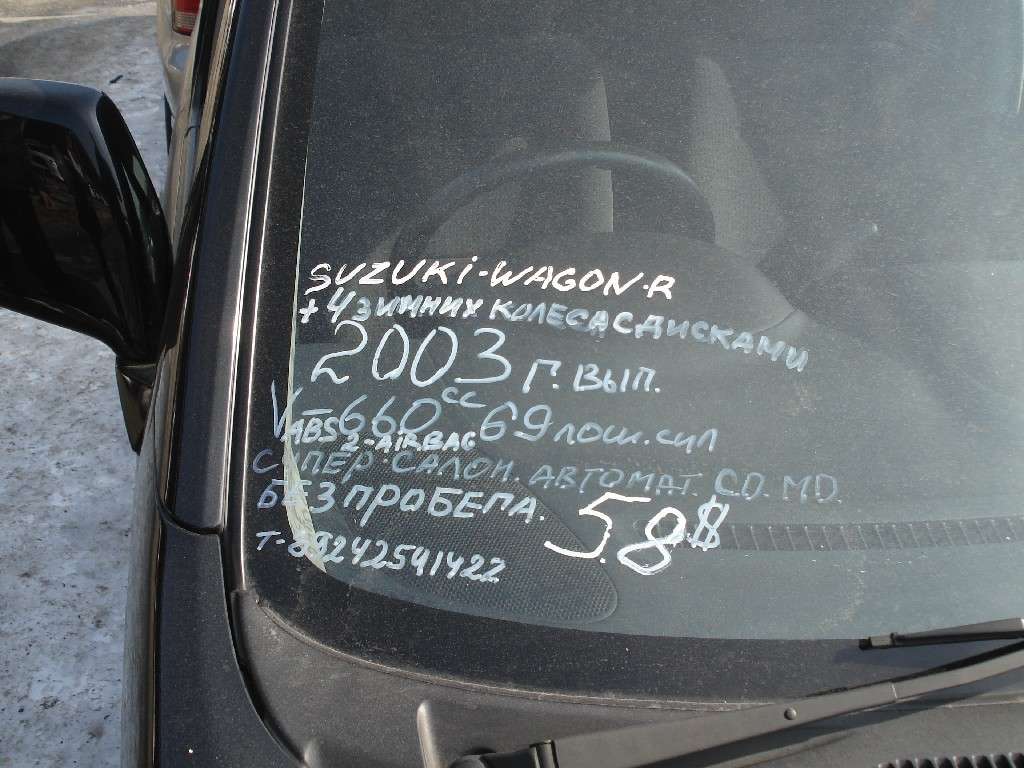 SUZUKi-WAGON-R
+ 4 ЗИМНИХ КОЛЕСА С ДИСКАМИ
2003 Г. ВЫП.
V-660 CC 69 ЛОШ. СИЛ
ABS 2-AiRBAG
СУПЕР САЛОН. АВТОМАТ. CD. MD.
БЕЗ ПРОБЕГА. 5.8$
Т-89242541422